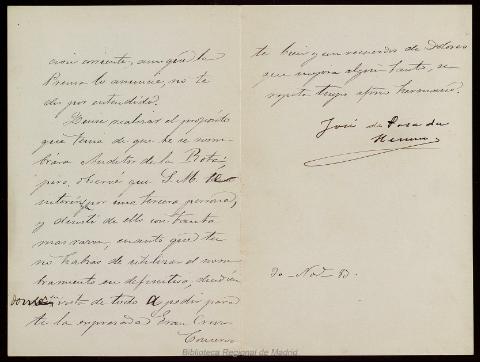 cion corriente, aunque la
Prensa lo anuncie, no te
des por entendido.
realizar el propósito
que tenia de que se te nom-
brara Auditor de la Rota;
pero, observé que S. M. 
por una tercera persona,
y desistí de ello con tanta
mas razon, cuanto que tu
no habias de utilizar el nom-
bramento en definitiva,
de todo a pedir para
ti la expresada Gran Cruz.
Consérva
te bien y con recuerdos de Dolores
que mejora algun tanto, se
repite tuyo afmo hermano.
José de Posada
Herrera
30 - Nov. 83.
Biblioteca Regional de Madrid